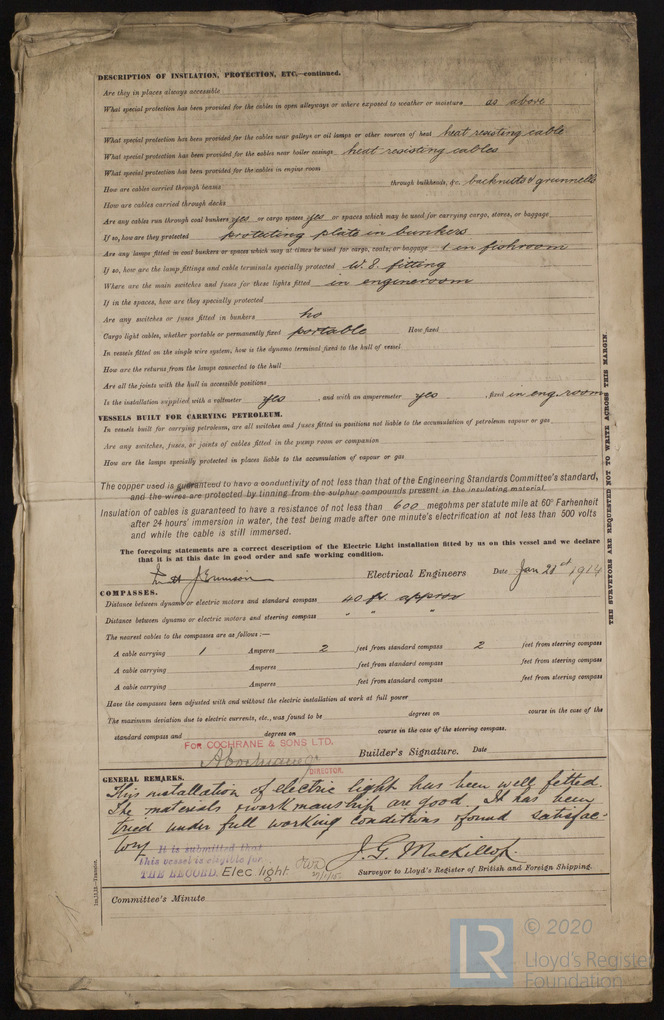 DESCRIPTION OF INSULATION, PROTECTION, ETC.—continued.
Are they in places always accessible
What special protection has been provided for the cables in open alleyways or where exposed to weather or moisture as above
What special protection has been provided for the cables near galleys or oil lamps or other sources of heat heat resisting cable
What special protection has been provided for the cables near boiler casings heat resisting cables
What special protection has been provided for the cables in engine room
How are cables carried through beams through bulkheads, &c. backnuts & grummells
How are cables carried through decks
Are any cables run through coal bunkers yes or cargo spaces yes or spaces which may be used for carrying cargo, stores, or baggage
If so, how are they protected protecting plate in bunkers
Are any lamps fitted in coal bunkers or spaces which may at times be used for cargo, coals, or baggage 1 in fishroom
If so, how are the lamp fittings and cable terminals specially protected W.S. fitting
Where are the main switches and fuses for these lights fitted in engineroom
If in the spaces, how are they specially protected
Are any switches or fuses fitted in bunkers no
Cargo light cables, whether portable or permanently fixed portable How fixed
In vessels fitted on the single wire system, how is the dynamo terminal fixed to the hull of vessel
How are the returns from the lamps connected to the hull
Are all the joints with the hull in accessible positions
Is the installation supplied with a voltmeter yes , and with an amperemeter yes , fixed in eng. room
VESSELS BUILT FOR CARRYING PETROLEUM.
In vessels built for carrying petroleum, are all switches and fuses fitted in positions not liable to the accumulation of petroleum vapour or gas
Are any switches, fuses, or joints of cables fitted in the pump room or companion
How are the lamps specially protected in places liable to the accumulation of vapour or gas
The copper used is guaranteed to have a conductivity of not less than that of the Engineering Standards Committee's standard,
and the wires are protected by tinning from the sulphur compounds present in the insulating material.
Insulation of cables is guaranteed to have a resistance of not less than 600 megohms per statute mile at 60° Farhenheit
after 24 hours' immersion in water, the test being made after one minute's electrification at not less than 500 volts
and while the cable is still immersed.
The foregoing statements are a correct description of the Electric Light installation fitted by us on this vessel and we declare
that it is at this date in good order and safe working condition.
Electrical Engineers Date Jan 21st 1914
COMPASSES.
Distance between dynamo or electric motors and standard compass 40 ft. approx
Distance between dynamo or electric motors and steering compass " " "
The nearest cables to the compasses are as follows:—
A cable carrying 1 Amperes 2 feet from standard compass 2 feet from steering compass
A cable carrying Amperes feet from standard compass feet from steering compass
A cable carrying Amperes feet from standard compass feet from steering compass
Have the compasses been adjusted with and without the electric installation at work at full power
The maximum deviation due to electric currents, etc., was found to be degrees on course in the case of the
standard compass and degrees on course in the case of the steering compass.
FOR COCHRANE & SONS LTD.
Builder's Signature. Date
DIRECTOR.
GENERAL REMARKS.
This installation of electric light has been well fitted.
The materials & workmanship are good. It has been
tried under full working conditions & found satisfac-
tory It is submitted that
this vessel is eligible for
THE RECORD. Elec light
J. G. Mackillop.
Surveyor to Lloyd's Register of British and Foreign Shipping.
Committee's Minute
THE SURVEYORS ARE REQUESTED NOT TO WRITE ACROSS THIS MARGIN.
LR
© 2020
Lloyd's Register
Foundation